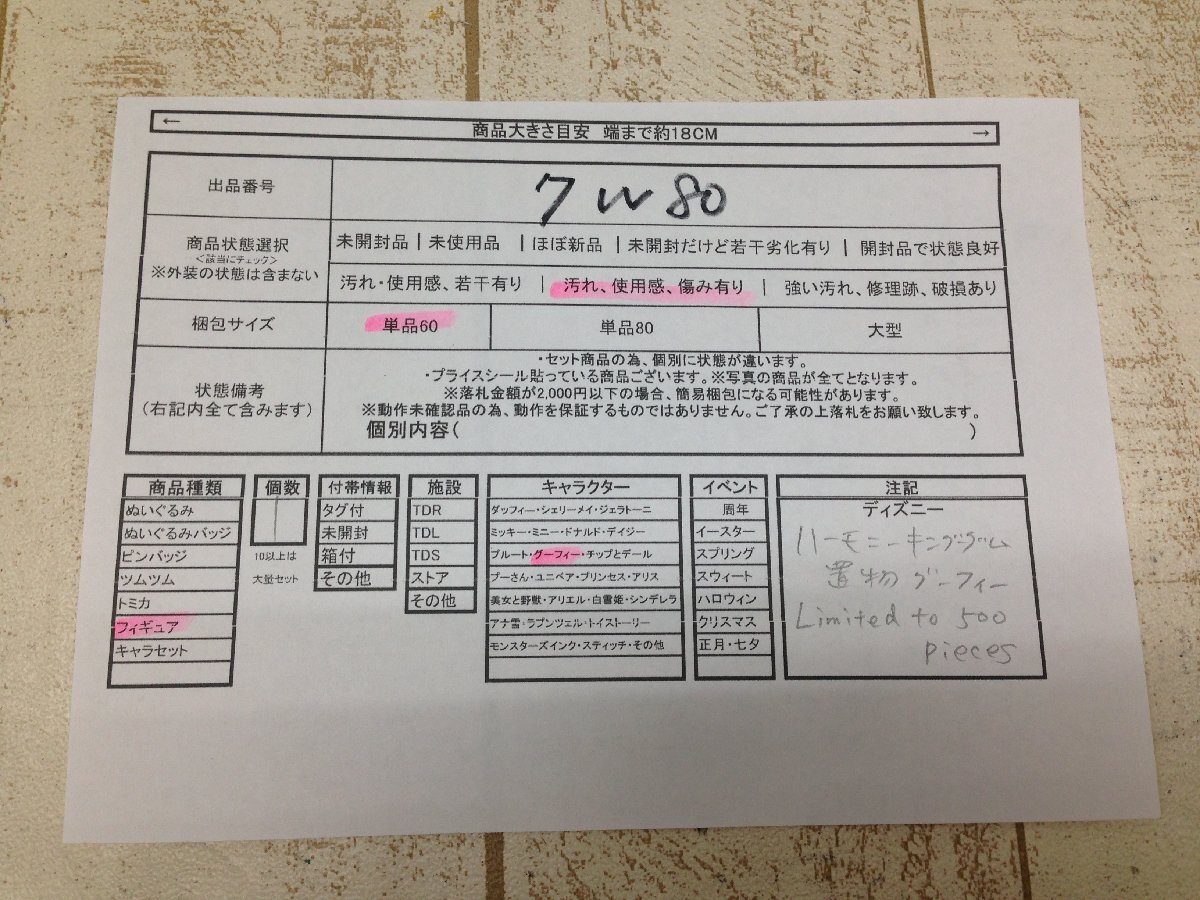 ← 商品大きさ目安 端まで約18CM →
出品番号 7W80
商品状態選択
<該当にチェック>
※外装の状態は含まない
未開封品 | 未使用品 | ほぼ新品 | 未開封だけど若干劣化有り | 開封品で状態良好
汚れ・使用感、若干有り | 汚れ、使用感、傷み有り | 強い汚れ、修理跡、破損あり
梱包サイズ 単品60 単品80 大型
状態備考
(右記内全て含みます)
・セット商品の為、個別に状態が違います。
・プライスシール貼っている商品ございます。※写真の商品が全てとなります。
※落札金額が2,000円以下の場合、簡易梱包になる可能性があります。
※動作未確認品の為、動作を保証するものではありません。ご了承の上落札をお願い致します。
個別内容( )
商品種類
ぬいぐるみ
ぬいぐるみバッジ
ピンバッジ
ツムツム
トミカ
フィギュア
キャラセット
個数
1
10以上は
大量セット
付帯情報
タグ付
未開封
箱付
その他
施設
TDR
TDL
TDS
ストア
その他
キャラクター
ダッフィー・シェリーメイ・ジェラトーニ
ミッキー・ミニー・ドナルド・デイジー
プルート・グーフィー・チップとデール
プーさん・ユニベア・プリンセス・アリス
美女と野獣・アリエル・白雪姫・シンデレラ
アナ雪・ラプンツェル・トイストーリー
モンスターズインク・スティッチ・その他
イベント
周年
イースター
スプリング
スウィート
ハロウィン
クリスマス
正月・七夕
注記
ディズニー
ハーモニーキングダム
置物 グーフィー
Limited to 500
pieces